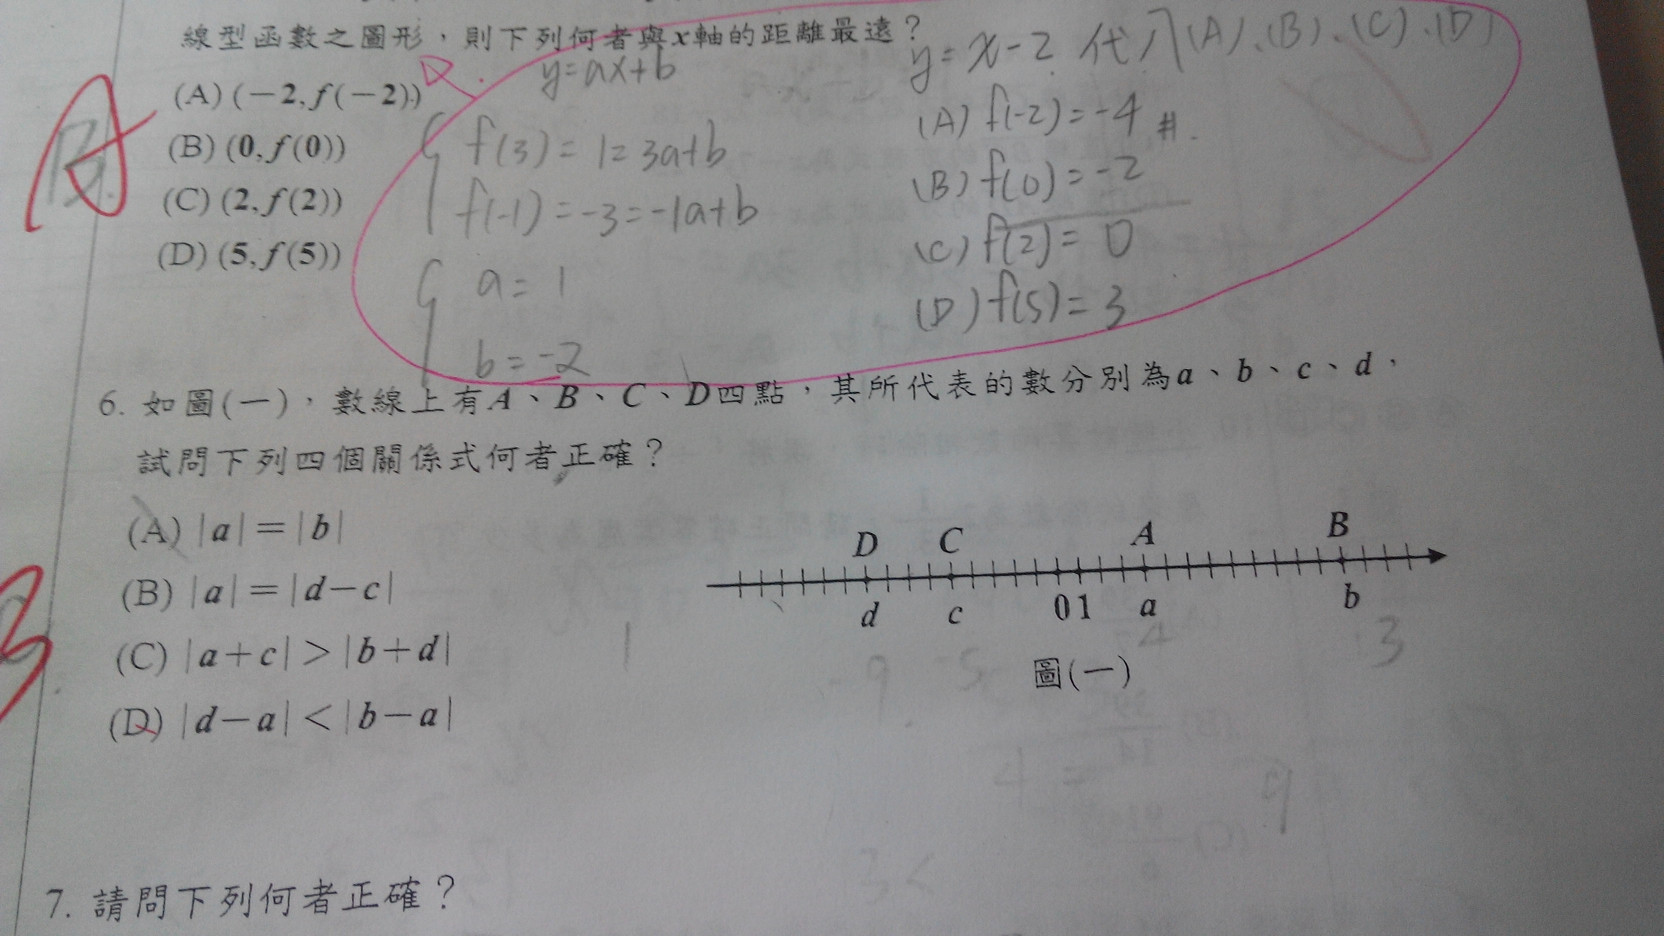 線型函數之圖形，則下列何者與x軸的距離最遠？
(A) (－2, f(－2))
(B) (0, f(0))
(C) (2, f(2))
(D) (5, f(5))
A
y=ax+b
f(3)=1=3a+b
f(-1)=-3=-1a+b
a=1
b=-2
y=x-2 代入(A)、(B)、(C)、(D)
(A) f(-2)=-4 #.
(B) f(0)=-2
(C) f(2)=0
(D) f(5)=3
6. 如圖(一)，數線上有A、B、C、D四點，其所代表的數分別為a、b、c、d，
試問下列四個關係式何者正確？
(A) |a|＝|b|
(B) |a|＝|d－c|
(C) |a＋c|＞|b＋d|
(D) |d－a|＜|b－a|
D C A B
d c 0 1 a b
-9 -5 4
圖(一)
4=
9
3<
7. 請問下列何者正確？